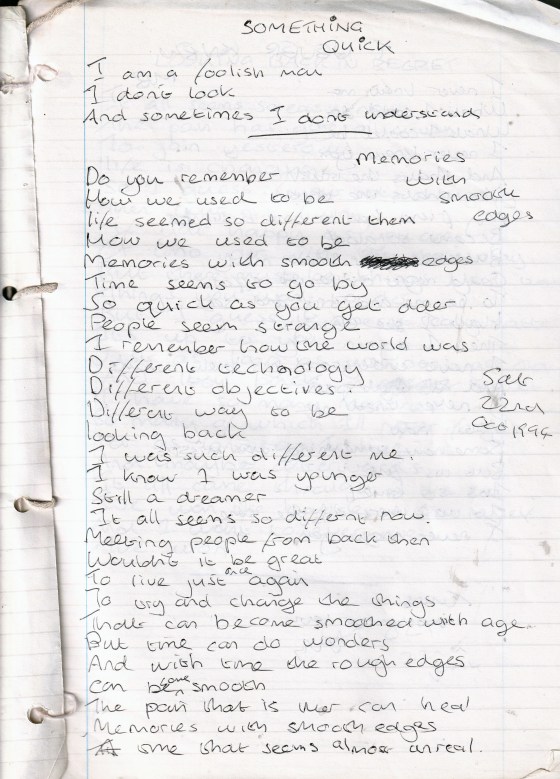 SOMETHING
QUICK
I am a foolish man
I don't look
And sometimes I dont understand
Memories
with
smooth
edges
Do you remember
How we used to be
life seemed so different them
How we used to be
Memories with smooth edges
Time seems to go by
So quick as you get older
People seem strange
I remember how the world was
Different technology
Different objectives.
Different way to be
looking back
Sat
22nd
Oct 1994
I was such different me.
I know I was younger
Still a dreamer
It all seems so differnt now.
Meeting people from back then
Wouldn't it be great
To live just once again
To try and change the things
That can become smoothed with age.
But time can do wonders
And with time the rough edges
can become smooth
The pain that is can heal
Memories with smooth edges
A time that seems almost unreal.